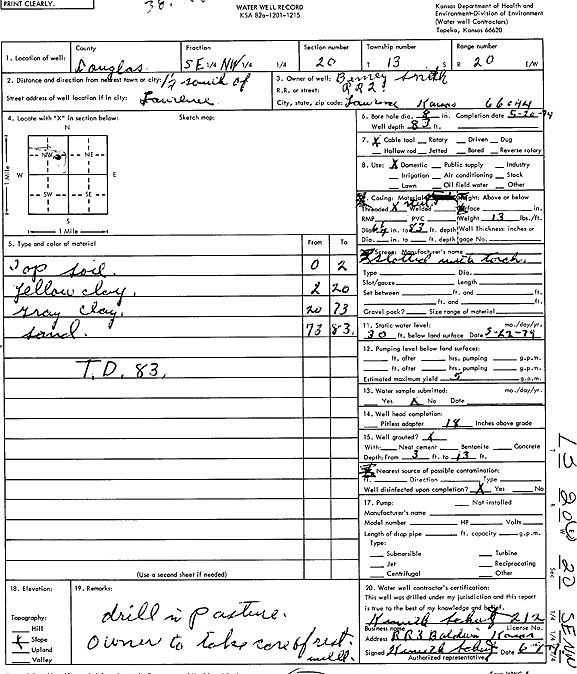 PRINT CLEARLY.
WATER WELL RECORD
KSA 82a-1201-1215
Kansas Department of Health and
Environment-Division of Environment
(Water well Contractors)
Topeka, Kansas 66620
1. Location of well:
County
Douglas
Fraction
SE 1/4 NW 1/4 1/4
Section number
20
Township number
T 13 S
Range number
R 20 E/W
2. Distance and direction from nearest town or city: 1/2 south of
Street address of well location if in city: Lawrence
3. Owner of well: Berney Smith
R.R. or street: RR2
City, state, zip code: Lawrence Kansas 66044
4. Locate with "X" in section below:
Sketch map:
N
NW NE
W E
SW SE
S
1 Mile
1 Mile
5. Type and color of material
From To
Top soil. 0 2
yellow clay, 2 20
gray clay, 20 73
sand. 73 83,
T.D. 83,
(Use a second sheet if needed)
6. Bore hole dia. 8 in. Completion date 5-20-79
Well depth 83 ft.
7. X Cable tool Rotary Driven Dug
Hollow rod Jetted Bored Reverse rotary
8. Use: X Domestic Public supply Industry
Irrigation Air conditioning Stock
Lawn Oil field water Other
9. Casing: Material Height: Above or below
Threaded X Welded Surface in.
RMP PVC Weight 13 lbs./ft.
Dia. in. to 83 ft. depth Wall Thickness: inches or
Dia. in. to ft. depth gage No.
10. Screen: Manufacturer's name
slotted with torch.
Type Dia.
Slot/gauze Length
Set between ft. and ft.
ft. and ft.
Gravel pack? Size range of material
11. Static water level: mo./day/yr.
30 ft. below land surface Date 5-22-79
12. Pumping level below land surfaces:
ft. after hrs. pumping g.p.m.
ft. after hrs. pumping g.p.m.
Estimated maximum yield 5 g.p.m.
13. Water sample submitted: mo./day/yr.
Yes X No Date
14. Well head completion:
Pitless adapter 18 Inches above grade
15. Well grouted? X
With: Neat cement Bentonite Concrete
Depth: From 3 ft. to 13 ft.
16. Nearest source of possible contamination:
ft. Direction Type
Well disinfected upon completion? X Yes No
17. Pump: Not installed
Manufacturer's name
Model number HP Volts
Length of drop pipe ft. capacity g.p.m.
Type:
Submersible Turbine
Jet Reciprocating
Centrifugal Other
18. Elevation:
Topography:
Hill
X Slope
Upland
Valley
19. Remarks:
drill in pasture.
Owner to take care of rest.
well.
20. Water well contractor's certification:
This well was drilled under my jurisdiction and this report
is true to the best of my knowledge and belief.
212
Business name License No.
Address RR3 Baldwin Kansas
Signed Date
Authorized representative
T 13
R 20 E
W
Sec 20
SE NW
1/4 1/4 1/4